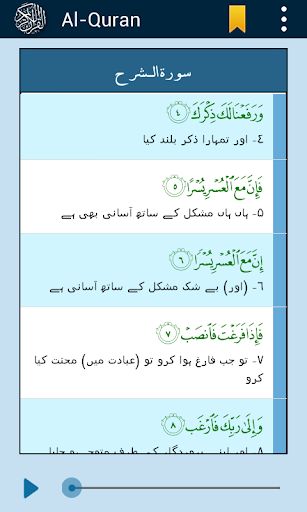 Al-Quran
سورة الشرح
وَرَفَعْنَا لَكَ ذِكْرَكَ ٤
٤- اور تمہارا ذکر بلند کیا
فَإِنَّ مَعَ ٱلْعُسْرِ يُسْرًا ٥
۵- ہاں ہاں مشکل کے ساتھ آسانی بھی ہے
إِنَّ مَعَ ٱلْعُسْرِ يُسْرًا ٦
٦- (اور) بے شک مشکل کے ساتھ آسانی ہے
فَإِذَا فَرَغْتَ فَٱنصَبْ ٧
۷- تو جب فارغ ہوا کرو تو (عبادت میں) محنت کیا
کرو
وَإِلَىٰ رَبِّكَ فَٱرْغَب ٨
۸- اور اپنے پروردگار کی طرف متوجہ ہو جایا